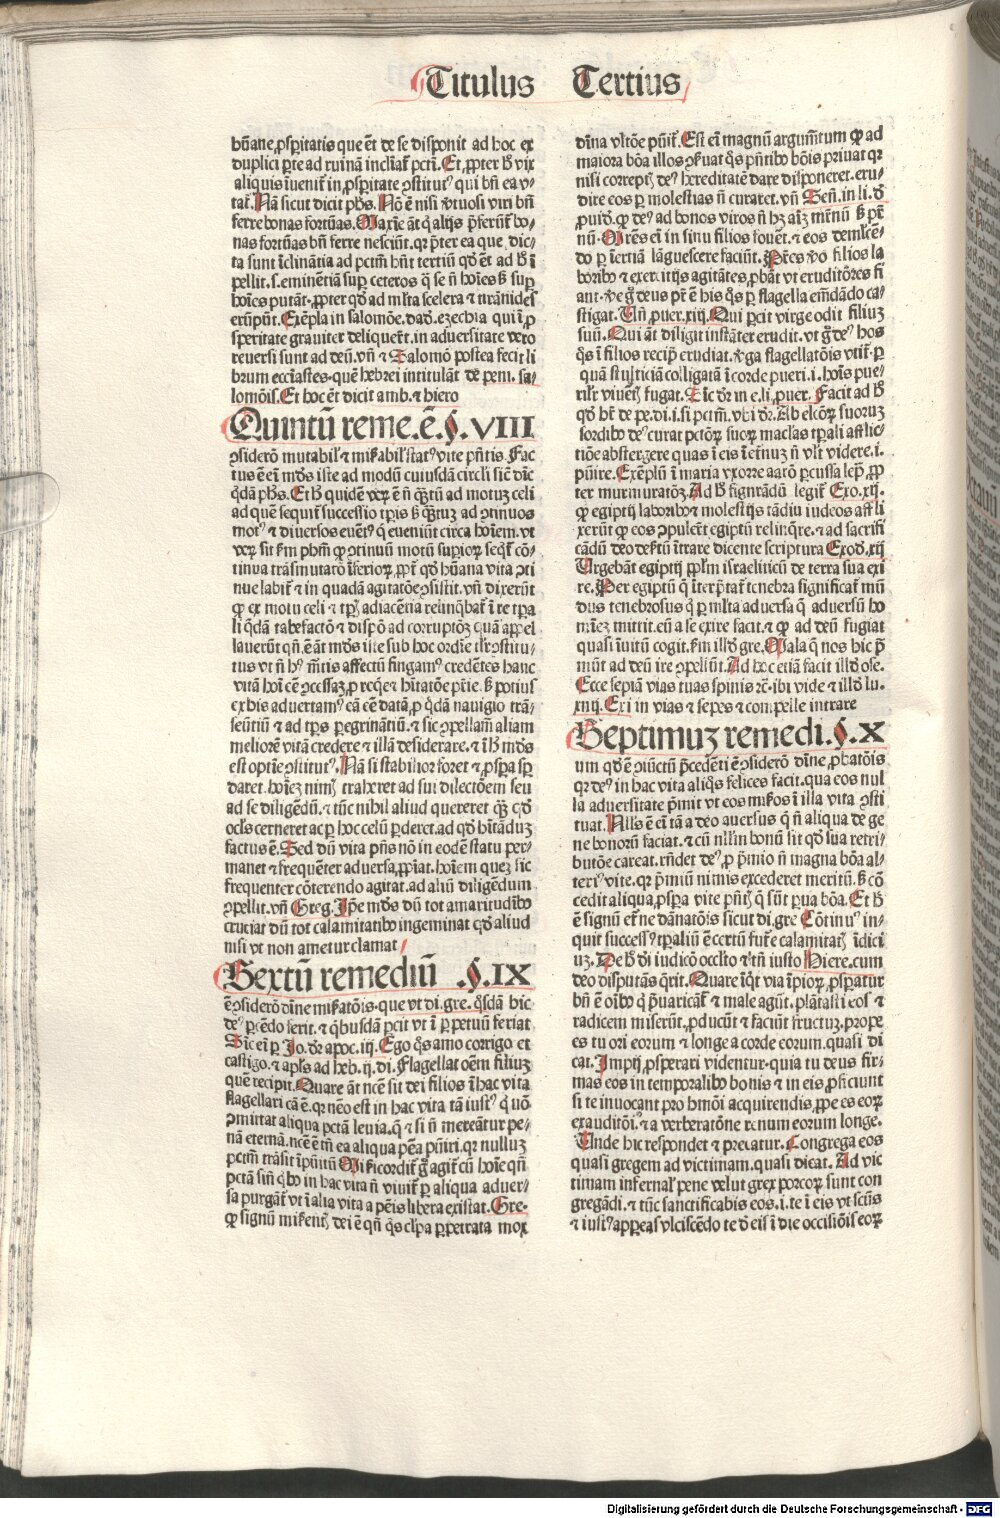 Titulus Tertius
hūane ꝓsꝑitatis que ēt de se disponit ad hoc ex
duplici ꝑte ad ruinā inclīat pctī. Et ꝓpter hꝰ vix
aliquis īuenit̄ in ꝓsꝑitate ꝯstitutꝰ qui bn̄ ea v-
tat̄. Nā sicut dicit phs. Nō ē nisi v̄tuosi viri bn̄
ferre bonas fortūas. Maxīe āt q̄ alijs p̄ferūt̄ bo-
nas fortūas bn̄ ferre nesciūt. qr p̄ter ea que dic-
ta sunt īclinātia ad pctm̄ hn̄t tertiū qd̄ ēt ad hꝰ ī
pellit. s. eminētiā suꝑ ceteros q̄ se n̄ hoīes sꝫ suꝑ
hoīes putāt. ꝓpter qd̄ ad ml̄ta scelera ⁊ tirānides
erūpūt. Exēpla in salomōe. dad̄. ezechia qui ī ꝓ
speritate grauiter deliquer̄t. in aduersitate vero
reuersi sunt ad deū. vn̄ ⁊ Salomō postea fecit li
brum eccīastes. quē hebrei intitulāt de peni. sa-
lomōis. Et hoc ēt dicit amb. ⁊ hiero
Quintū reme. ē. §. VIII
ꝯsiderō mutabil̄ ⁊ mis̄abil̄ statꝰ vite pn̄tis. Fac
tus ē eī mō̄s iste ad modū cuiusdā circli sic̄ dīc
q̄dā phs. Et hꝰ quidē veꝝ ē n̄ qꝫtū ad motuꝫ celi
ad quē sequit̄ successio tꝑis sꝫ qꝫtuꝫ ad ꝯtinuos
motꝰ ⁊ diuersos euētꝰ q̄ eueniūt circa hoīem. vt
veꝝ sit s̄m phm̄ ꝙ ꝯtinuū motū suꝑioꝝ seq̄t̄ cō-
tinua trāsmutatō īferioꝝ, ꝓut̄ qd̄ hūana vita ꝯti
nue labit̄ ⁊ in quadā agitatōe ꝯsistit. vn̄ dixerūt
ꝙ ex motu celi ⁊ tꝑꝫ adiacētia relinq̄bat̄ ī re tꝑa
li q̄dā tabefactō ⁊ dispō ad corruptōꝫ quā appel
lauerūt qn̄. ē āt mō̄s iste sub hoc ordīe īste ꝯstitu-
tus vt n̄ hꝰ mētis affectū fingamꝰ credētes hanc
vitā hoī cē ꝯcessaꝫ ꝓ reqe ⁊ hītatōe pr̄ie. sꝫ potius
ex his aduertamꝰ eā cē datā ꝓ q̄dā nauigio trā-
seūtiū ⁊ ad tꝑs ꝑegrinātiū. ⁊ sic ꝯpellam̄ aliam
meliorē vitā credere ⁊ illā desiderare. ⁊ ī hꝰ mō̄s
est optīe ꝯstitutꝰ. Nā si stabilior foret ⁊ ꝓspa sꝑ
daret. hoīeꝫ nimꝫ traheret ad sui dilectōem seu
ad se diligēdū. ⁊ tūc nihil aliud quereret qꝫ qd̄
ocl̄s cerneret ac ꝑ hoc celū ꝑderet. ad qd̄ hītāduꝫ
factus ē. Sed dū vita pn̄s nō in eodē statu per-
manet ⁊ frequēter aduersa ꝓpīat. hoīem queꝫ sic
frequenter cōterendo agitat. ad aliū diligēdum
ꝯpellit. vn̄ Greg. Ipē mō̄s dū tot amaritudībꝰ
cruciat dū tot calamitatibꝰ ingeminat qd̄ aliud
nisi vt non ametur clamat
Sextū remediū .§. IX
ē ꝯsiderō dīne mis̄atōis. que vt di. gre. q̄sdā hic
deꝰ ꝑcēdo ferit. ⁊ qbusdā ꝑcit vt ī ꝑpetuū feriat
Sic eī ꝑ Jo. dr̄ apoc. iij. Ego qs amo corrigo et
castigo. ⁊ apl̄s ad heb. ij. di. Flagellat oēm filiuꝫ
quē recipit. Quare āt nc̄ē sit dei filios ī hac vita
flagellari cā ē. qr nēo est in hac vita tā iustꝰ q̄ nō
ꝯmittat aliqua pctā leuia. q̄ ⁊ si n̄ mereātur pe-
nā eternā. nc̄ē ē tn̄ ea aliqua pēa pūiri. qr nulluꝫ
pctm̄ trāsit īpūitū Mis̄icordit̄ g̊ agit̄ cū hoīe qn̄
pctā sin̄ qbꝰ in hac vita n̄ viuit̄ ꝑ aliqua aduer-
sa purgāt̄ vt ī alia vita a pēis libera existat. Gre-
ꝙ signū mis̄entꝫ dei ē qn̄ qs cl̄pa ꝑpetrata mox
dīna vltōe pūit̄. Est eī magnū argumētum ꝙ ad
maiora bōa illos ꝯs̄uat qs pn̄tibꝰ bōis priuat qr
nisi correptꝫ deꝰ hereditatē dare disponeret. eru-
dire eos ꝑ molestias n̄ curaret. vn̄ Sen̄. in li. d̄
ꝓuid. ꝙ deꝰ ad bonos viros n̄ hꝫ aīꝫ mr̄nū sꝫ pr̄
nū. Mr̄es eī in sinu filios fouēt. ⁊ eos demlcē-
do ꝑ īertiā lāguescere faciūt. Pr̄es v̄o filios la
boribꝰ ⁊ exercitijs agitātes ꝓbāt vt eruditōres fi
ant. v̄e g̊ deus pr̄ ē his qs ꝑ flagella emēdādo ca-
stigat. Un̄ ꝓuer. xiij. Qui ꝑcit virge odit filiuꝫ
suū. Qui āt diligit instāter erudit. vt g̊ deꝰ hos
qs ī filios reciꝑ erudiat. v̄ga flagellatōis vtit̄. ꝑ
quā stulticiā colligatā ī corde pueri. i. hoīs pue-
rilr̄ viuētꝫ fugat. Sic dr̄ in e. li. ꝓuer. Facit ad hꝰ
qd̄ ht̄ de pe. di. i. si pctm̄. vbi dr̄. Ab elcōꝝ suoruꝫ
sordibꝰ deꝰ curat pctōꝝ suoꝝ macl̄as tꝑali afflic-
tiōe abstergere quas ī eis ī etnuꝫ n̄ vlt̄ videre. i.
pūire. Exēplū ī maria vxorre aarō ꝑcussa lepꝫ ꝓp
ter murmuratōꝫ. Ad hꝰ figurādū legit̄ Exo. xij.
ꝙ egiptij laboribꝰ ⁊ molestijs tādiu iudeos affli
xerūt ꝙ eos ꝯpulēt egiptū relinq̄re. ⁊ ad sacrifi
cādū deo des̄tū ītrare dicente scriptura Exod̄. xij
Urgebāt egiptij ꝓpl̄m israeliticū de terra sua exi
re. Per egiptū q̄ īterp̄tat̄ tenebra significat̄ mū
dus tenebrosus q̄ ꝑ ml̄ta aduersa q̄ aduersū ho
mīeꝫ mittit. eū a se exire facit. ⁊ ꝙ ad deū fugiat
quasi īuitū cogit. s̄m illd̄ gre. Mala q̄ nos hic p̄
mūt ad deū ire ꝯpellūt. Ad hoc etiā facit illd̄ ose.
Ecce sepiā vias tuas spinis rc̄. ibi vide ⁊ illd̄ lu.
xiiij. Exi in vias ⁊ sepes ⁊ compelle intrare
Septimuꝫ remedi. §. X
um qd̄ ē ꝯiūctū p̄cedēti ē ꝯsiderō dīne ꝓbatōis
qr deꝰ in hac vita aliqs felices facit. qua eos nul
la aduersitate p̄mit vt eos mis̄os ī illa vita ꝯsti
tuat. Null̄s ē eī tā a deo auersus q̄ n̄ aliqua de ge
ne bonorū faciat. ⁊ cū nullm̄ bonū sit qd̄ sua retri-
butōe careat. rn̄det deꝰ ꝓ p̄mio n̄ magna bōa al-
teriꝰ vite. qr p̄miū nimis excederet meritū. sꝫ cō
cedit aliqua ꝓspa vite pn̄tꝫ q̄ sūt ꝑua bōa. Et hꝰ
ē signū et̄ne dānatōis sicut di. gre Cōtinuꝰ in-
quit successꝰ tꝑaliū ē certū futr̄e calamitatꝫ īdici
uꝫ. De hꝰ di iudicō occl̄to ⁊ tn̄ iusto Hiere. cum
deo disputās q̄rit. Quare īqt via īpioꝝ ꝓsꝑatur
bn̄ ē oībꝰ q̄ p̄uaricat̄ ⁊ male agūt. plātasti eos ⁊
radicem miserūt. ꝓducūt ⁊ faciūt fructuꝫ. prope
es tu ori eorum ⁊ longe a corde eorum. quasi di
cat. Impij ꝓsperari videntur. quia tu deus fir-
mas eos in temporalibꝰ bonis ⁊ in eis ꝓficiunt
si te inuocant pro hmōi acquirendis. ꝓpe es eoꝝ
exauditōi. ⁊ a verberatōne renum eorum longe.
Unde hic respondet ⁊ precatur. Congrega eos
quasi gregem ad victimam. quasi dicat. Ad vic
timam infernal̄ pene velut grex porcoꝝ sunt con
gregādi. ⁊ tūc sanctificabis eos. i. te ī eis vt scūs
⁊ iustꝰ apꝑeas vlciscēdo te d̄ eis ī die occisiōis eoꝝ
Digitalisierung gefördert durch die Deutsche Forschungsgemeinschaft - DFG